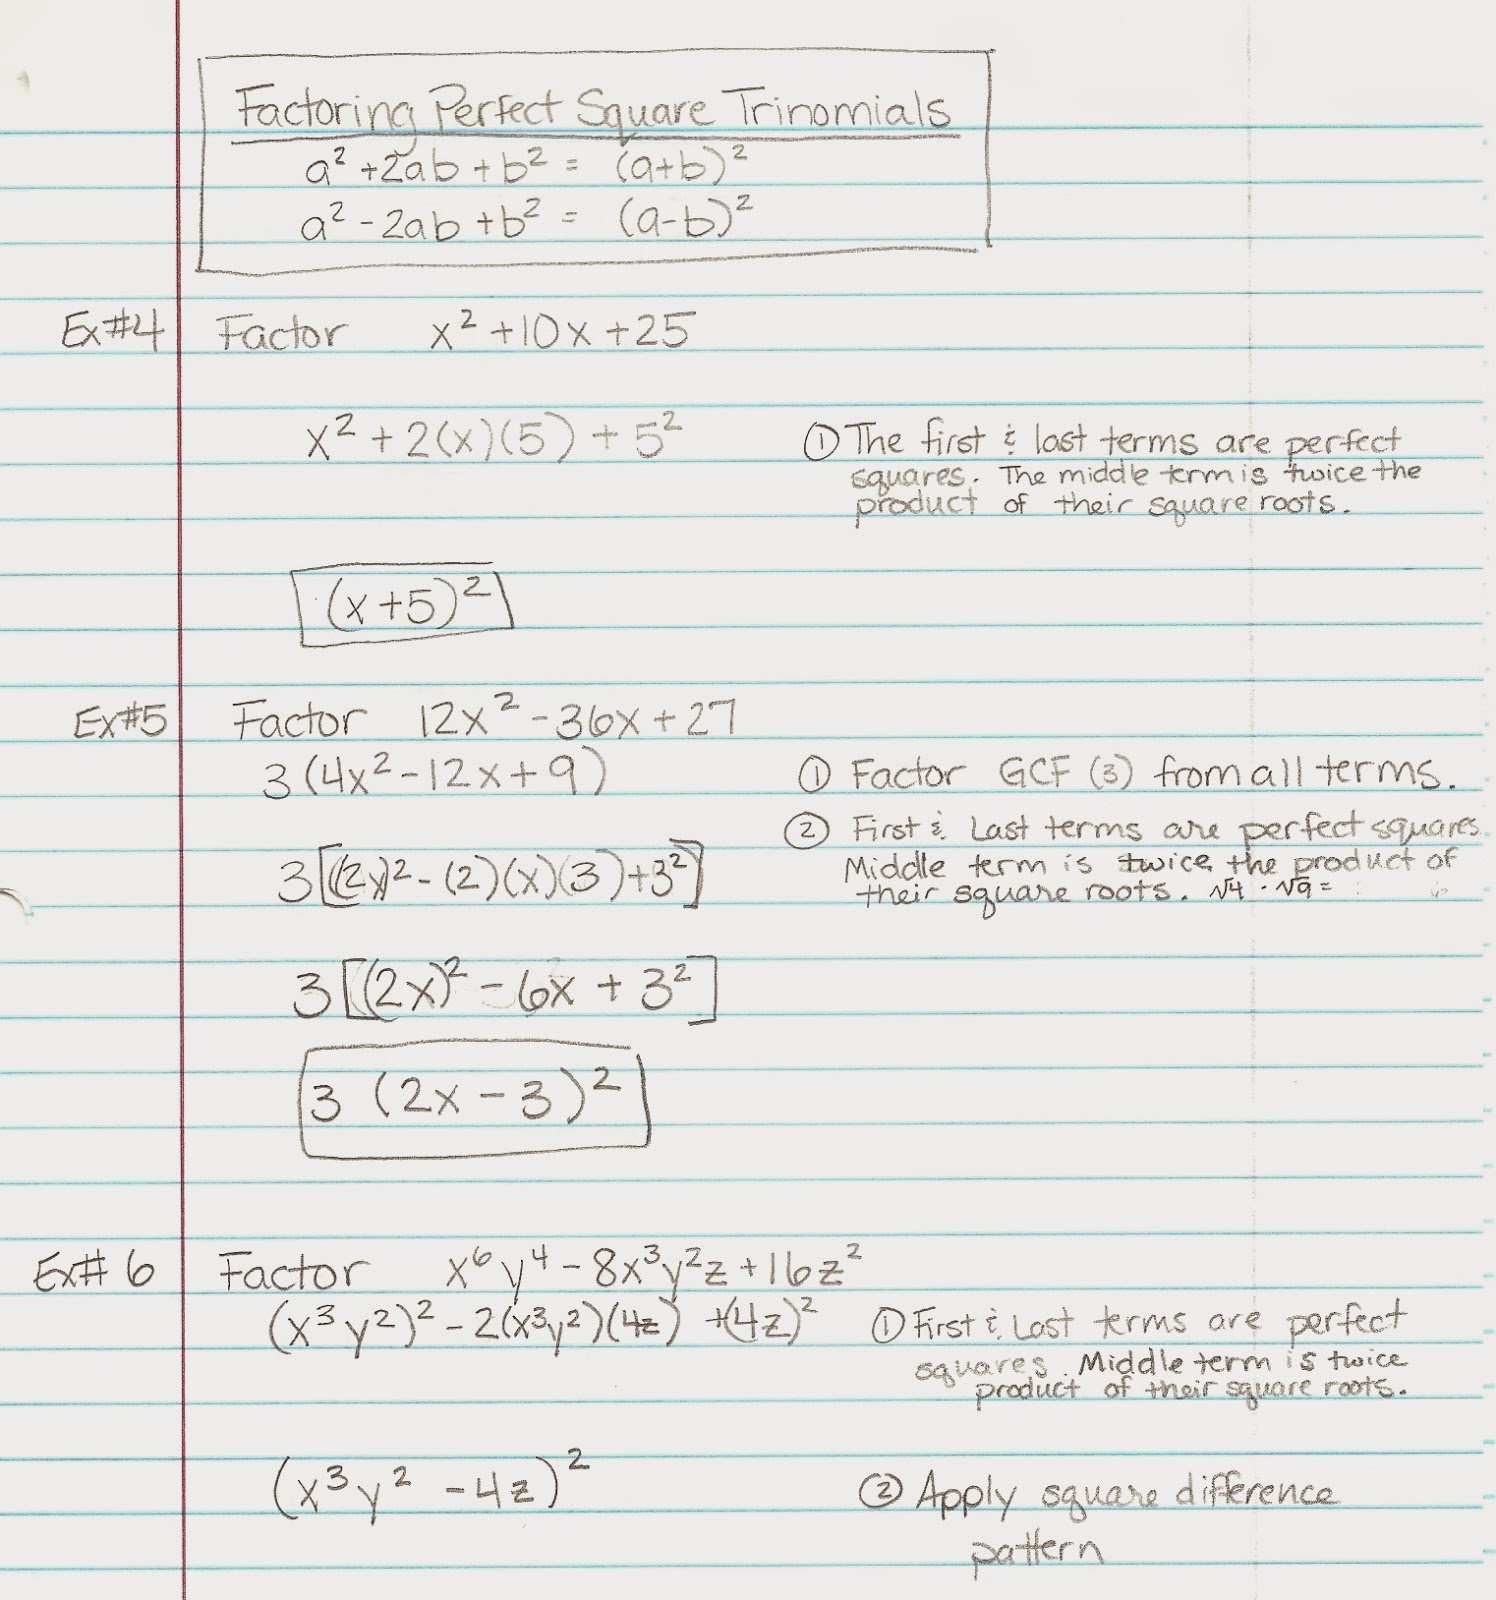 Factoring Perfect Square Trinomials
a² + 2ab + b² = (a+b)²
a² - 2ab + b² = (a-b)²
Ex#4 Factor x² + 10x + 25
x² + 2(x)(5) + 5² ① The first & last terms are perfect
squares. The middle term is twice the
product of their square roots.
(x+5)²
Ex#5 Factor 12x² - 36x + 27
3(4x² - 12x + 9) ① Factor GCF (3) from all terms.
② First & Last terms are perfect squares.
3[(2x)² - (2)(x)(3) + 3²] Middle term is twice the product of
their square roots. √4 · √9 =
3[(2x)² - 6x + 3²]
3 (2x - 3)²
Ex# 6 Factor x⁶y⁴ - 8x³y²z + 16z²
(x³y²)² - 2(x³y²)(4z) + (4z)² ① First & Last terms are perfect
squares. Middle term is twice
product of their square roots.
(x³y² - 4z)² ② Apply square difference
pattern